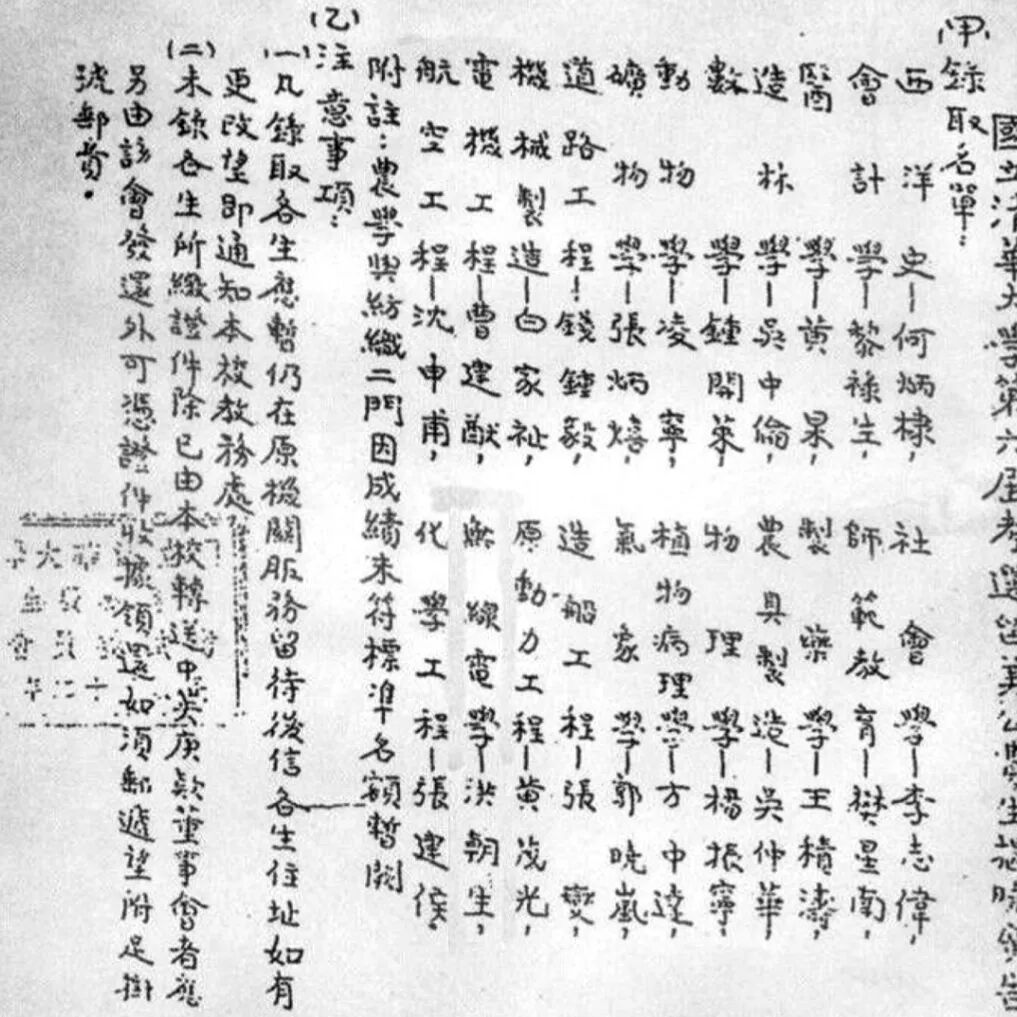 國立清華大學第六屆考選留美公費生揭曉通告
(甲)錄取名單：
西洋史—何炳棣，社會學—李志偉，
會計學—黎祿生，師範教育—樊星南，
醫學—黃杲，製藥學—王積濤，
造林學—吳中倫，農具製造—吳仲華，
數學—鍾開萊，物理學—楊振寧，
動物學—凌寧，植物病理學—方中達，
礦物學—張炳熺，氣象學—郭曉嵐，
道路工程—錢鍾毅，造船工程—張燮，
機械製造—白家祉，原動力工程—黃茂光，
電機工程—曹建猷，無線電學—洪朝生，
航空工程—沈申甫，化學工程—張建侯。
附註：農學與紡織二門因成績未符標準名額暫闕
(乙)注意事項：
(一)凡錄取各生應暫仍在原機關服務留待後信各生住址如有
更改望即通知本校教務處
(二)未錄各生所繳證件除已由本校轉送中英庚款董事會者應
另由該會發還外可憑證件收據領還如須郵遞望附足掛
號郵費．